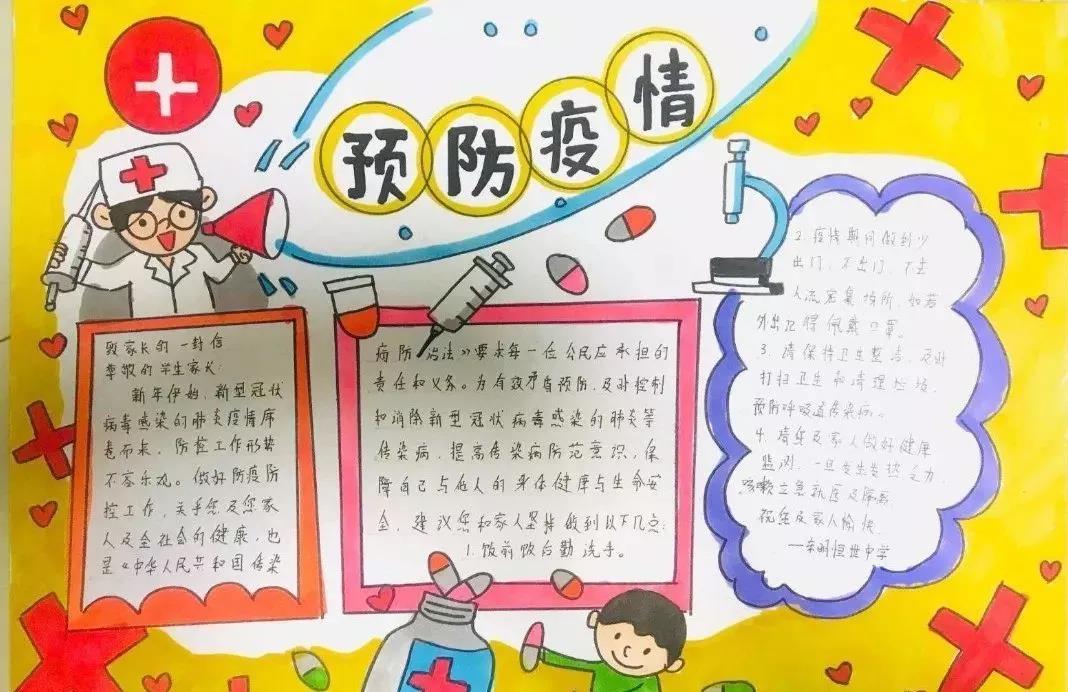 预防疫情
致家长的一封信
尊敬的学生家长:
新年伊始,新型冠状
病毒感染的肺炎疫情席
卷而来,防控工作形势
不容乐观。做好防疫防
控工作,关乎您及您家
人及全社会的健康,也
是《中华人民共和国传染
病防治法》要求每一位公民应承担的
责任和义务。为有效预防,及时控制
和消除新型冠状病毒感染的肺炎等
传染病,提高传染病防范意识,保
障自己与他人的身体健康与生命安
全,建议您和家人坚持做到以下几点:
1.饭前饭后勤洗手。
2.疫情期间做到少
出门,不出门,不去
人流密集场所,如若
外出必得佩戴口罩。
3.请保持卫生整洁,及时
打扫卫生和清理垃圾,
预防呼吸道传染病。
4.请您及家人做好健康
监测,一旦发生发热乏力,
咳嗽立急就医及隔离
祝您及家人愉快
恒世中学